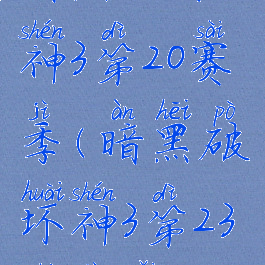 shén dì sài
神3第20赛
jì àn hēi pò
季(暗黑破
huài shén dì
坏神3第23